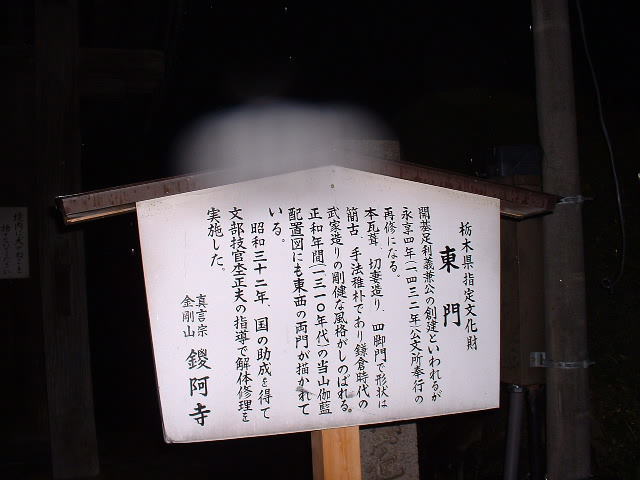 栃木県指定文化財
東門
開基足利義兼公の創建といわれるが
永享四年(一四三二年)公文所奉行の
再修になる。
本瓦葺、切妻造り、四脚門で形状は
簡古、手法雅朴であり鎌倉時代の
武家造りの剛健な風格がしのばれる。
正和年間(一三一〇年代)の当山伽藍
配置図にも東西の両門が描かれて
いる。
昭和三十二年、国の助成を得て
文部技官杢正夫の指導で解体修理を
実施した。
真言宗
金剛山
鑁阿寺